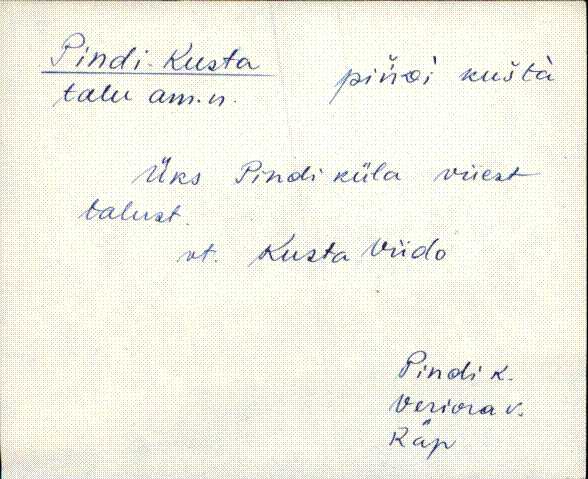 Pindi-Kusta pińɒi kuštà
talu am.n.
Üks Pindi küla viiest
talust.
vt. Kusta Viido
Pindi k.
Veriora v.
Räp